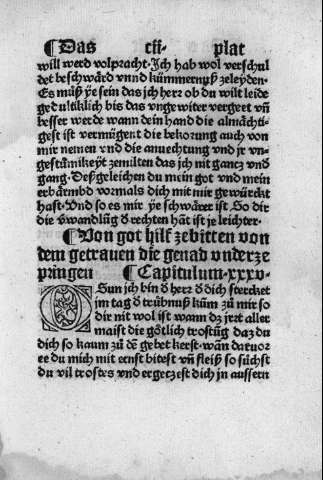 ¶Das cii· plat
will werd volpracht· Jch hab wol verschul
det beschwärd vnnd kümmernuß zeleyden·
Es müß ye sein das jch herr ob du wilt leide
gedultiklich bis das vngewiter vergeet vñ
besser werde wann dein hand die almächti-
gest ist vermügent die bekorung auch von
mir nemen vnd die anuechtung vnd jr vn-
gestümikeyt zemilten das jch nit gancz vnd
gang· Deßgleichen du mein got vnd mein
erbärmbd vormals dich mit mir gewürckt
hast· Vnd so es mir ye schwärer ist· So dir
die v̈wandlūg d̄ rechten hāt ist je leichter·
¶Von got hilf zebitten von
dem getrauen die genad vnderze
pringen ¶Capitulum·xxxv·
O Sun jch bin d̄ herr d̄ dich stercket
im tag d̄ trübnuß kūm zů mir so
dir nit wol ist wann dz jrrt aller
maist die götlich trostūg daz du
dich so kaum zů dē gebet kerst· wān daruor
ee du mich mit ernst bitest vñ fleiß so süchst
du vil trostes vnd ergeczest dich in aussern